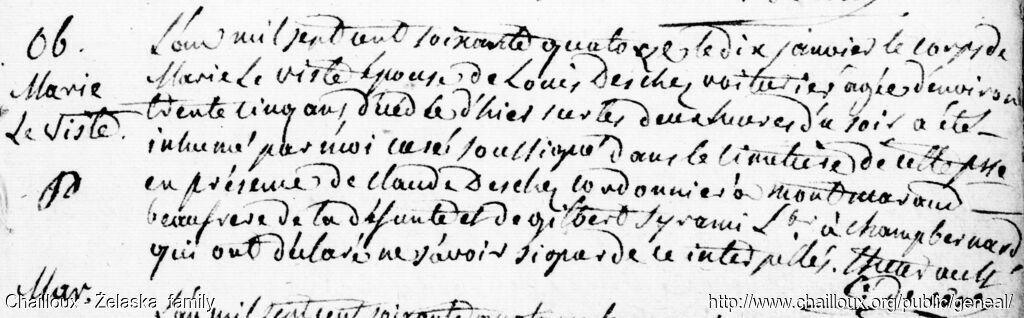 Ob.
Marie
Le Viste.
L'an mil sept cent soixante quatorze le dix janvier le corps de
Marie Le viste épouse de Louis Deschez voiturier agée d'environ
trente cinq ans décédée d'hier sur les deux heures du soir a été
inhumé par moi curé soussigné dans le cimetiere de cette psse
en présence de claude Deschez cordonnier à montmaraud
beaufrere de la défunte et de gilbert Syrami L.br à champbernard
qui ont déclaré ne sçavoir signer de ce interpellés.
Mar.
L'an mil sept cent soixante quatorze
Chailloux - Żelaska family
http://www.chailloux.org/public/geneal/